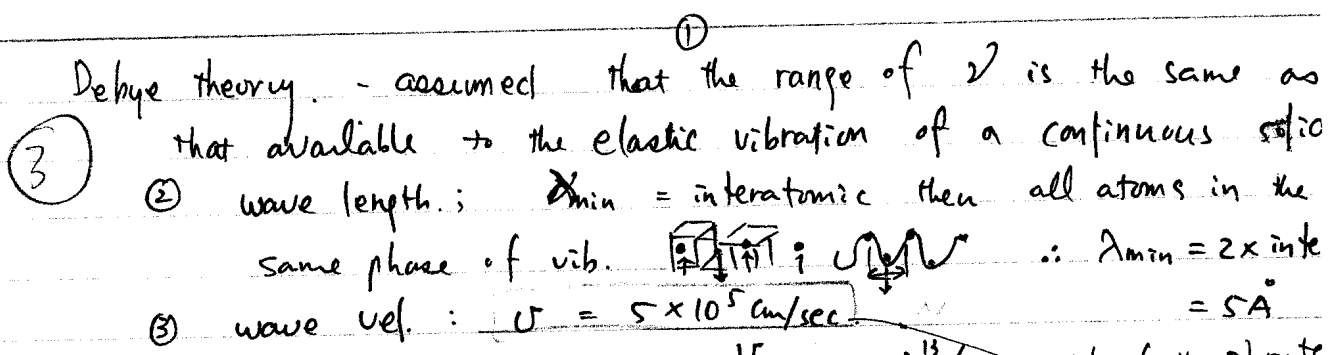 ①
Debye theory. - assumed that the range of ν is the same as
③ that available to the elastic vibration of a continuous
② wave length. ; λmin = interatomic then all atoms in the
same phase of vib. ∴ λmin = 2 x inte
= 5Å
③ wave vel. : v = 5 × 10⁵ cm/sec.